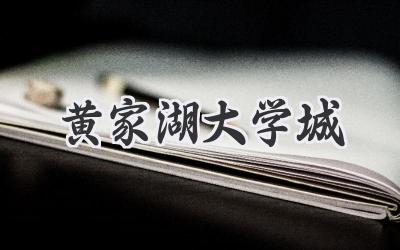 黄家湖大学城